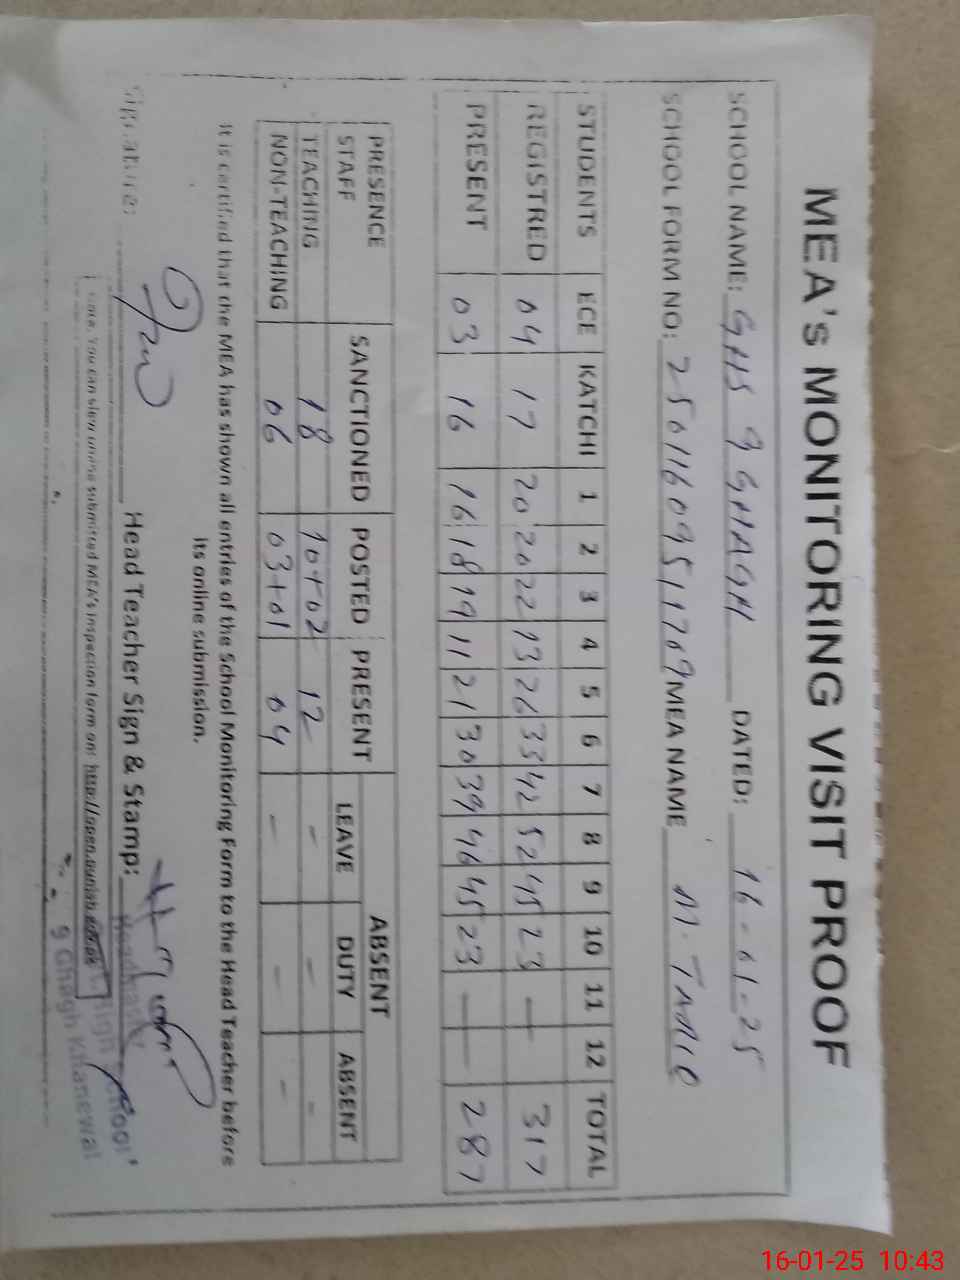 MEA's MONITORING VISIT PROOF
SCHOOL NAME: GHS 9 GHAGH DATED: 16-01-25
SCHOOL FORM NO: 25011609511709 MEA NAME M. TARIQ
STUDENTS ECE KATCHI 1 2 3 4 5 6 7 8 9 10 11 12 TOTAL
REGISTRED 04 17 20 20 22 13 26 33 42 52 45 23 — — 317
PRESENT 03 16 16 18 19 11 21 30 39 46 45 23 — — 287
PRESENCE STAFF SANCTIONED POSTED PRESENT ABSENT
LEAVE DUTY ABSENT
TEACHING 18 10+02 12 - - -
NON-TEACHING 06 03+01 04 - - -
It is certified that the MEA has shown all entries of the School Monitoring Form to the Head Teacher before
its online submission.
Signature: Head Teacher Sign & Stamp:
Note. You can view online submitted MEA's inspection form on: http://open.punjab.gov.pk
High School
9 Ghagh Khanewal
16-01-25 10:43